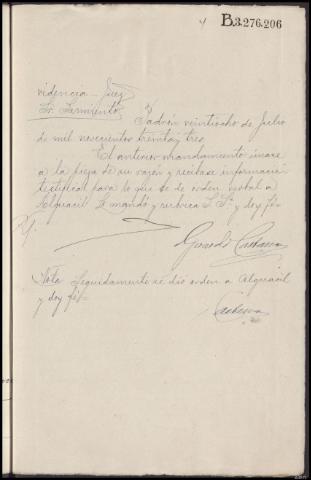 4
B.3.276.206
videncia - Juez
Sr. Sarmiento
Padrón veintiocho de Julio
de mil novecientos treinta y tres
El anterior mandamiento únase
a la pieza de su razón y recíbase información
testifical para lo que se da orden verbal a
Alguacil. Lo mandó y rubrica S. Sª. y doy fé=
Gerardo
Nota Seguidamente se dió orden a Alguacil
y doy fé=